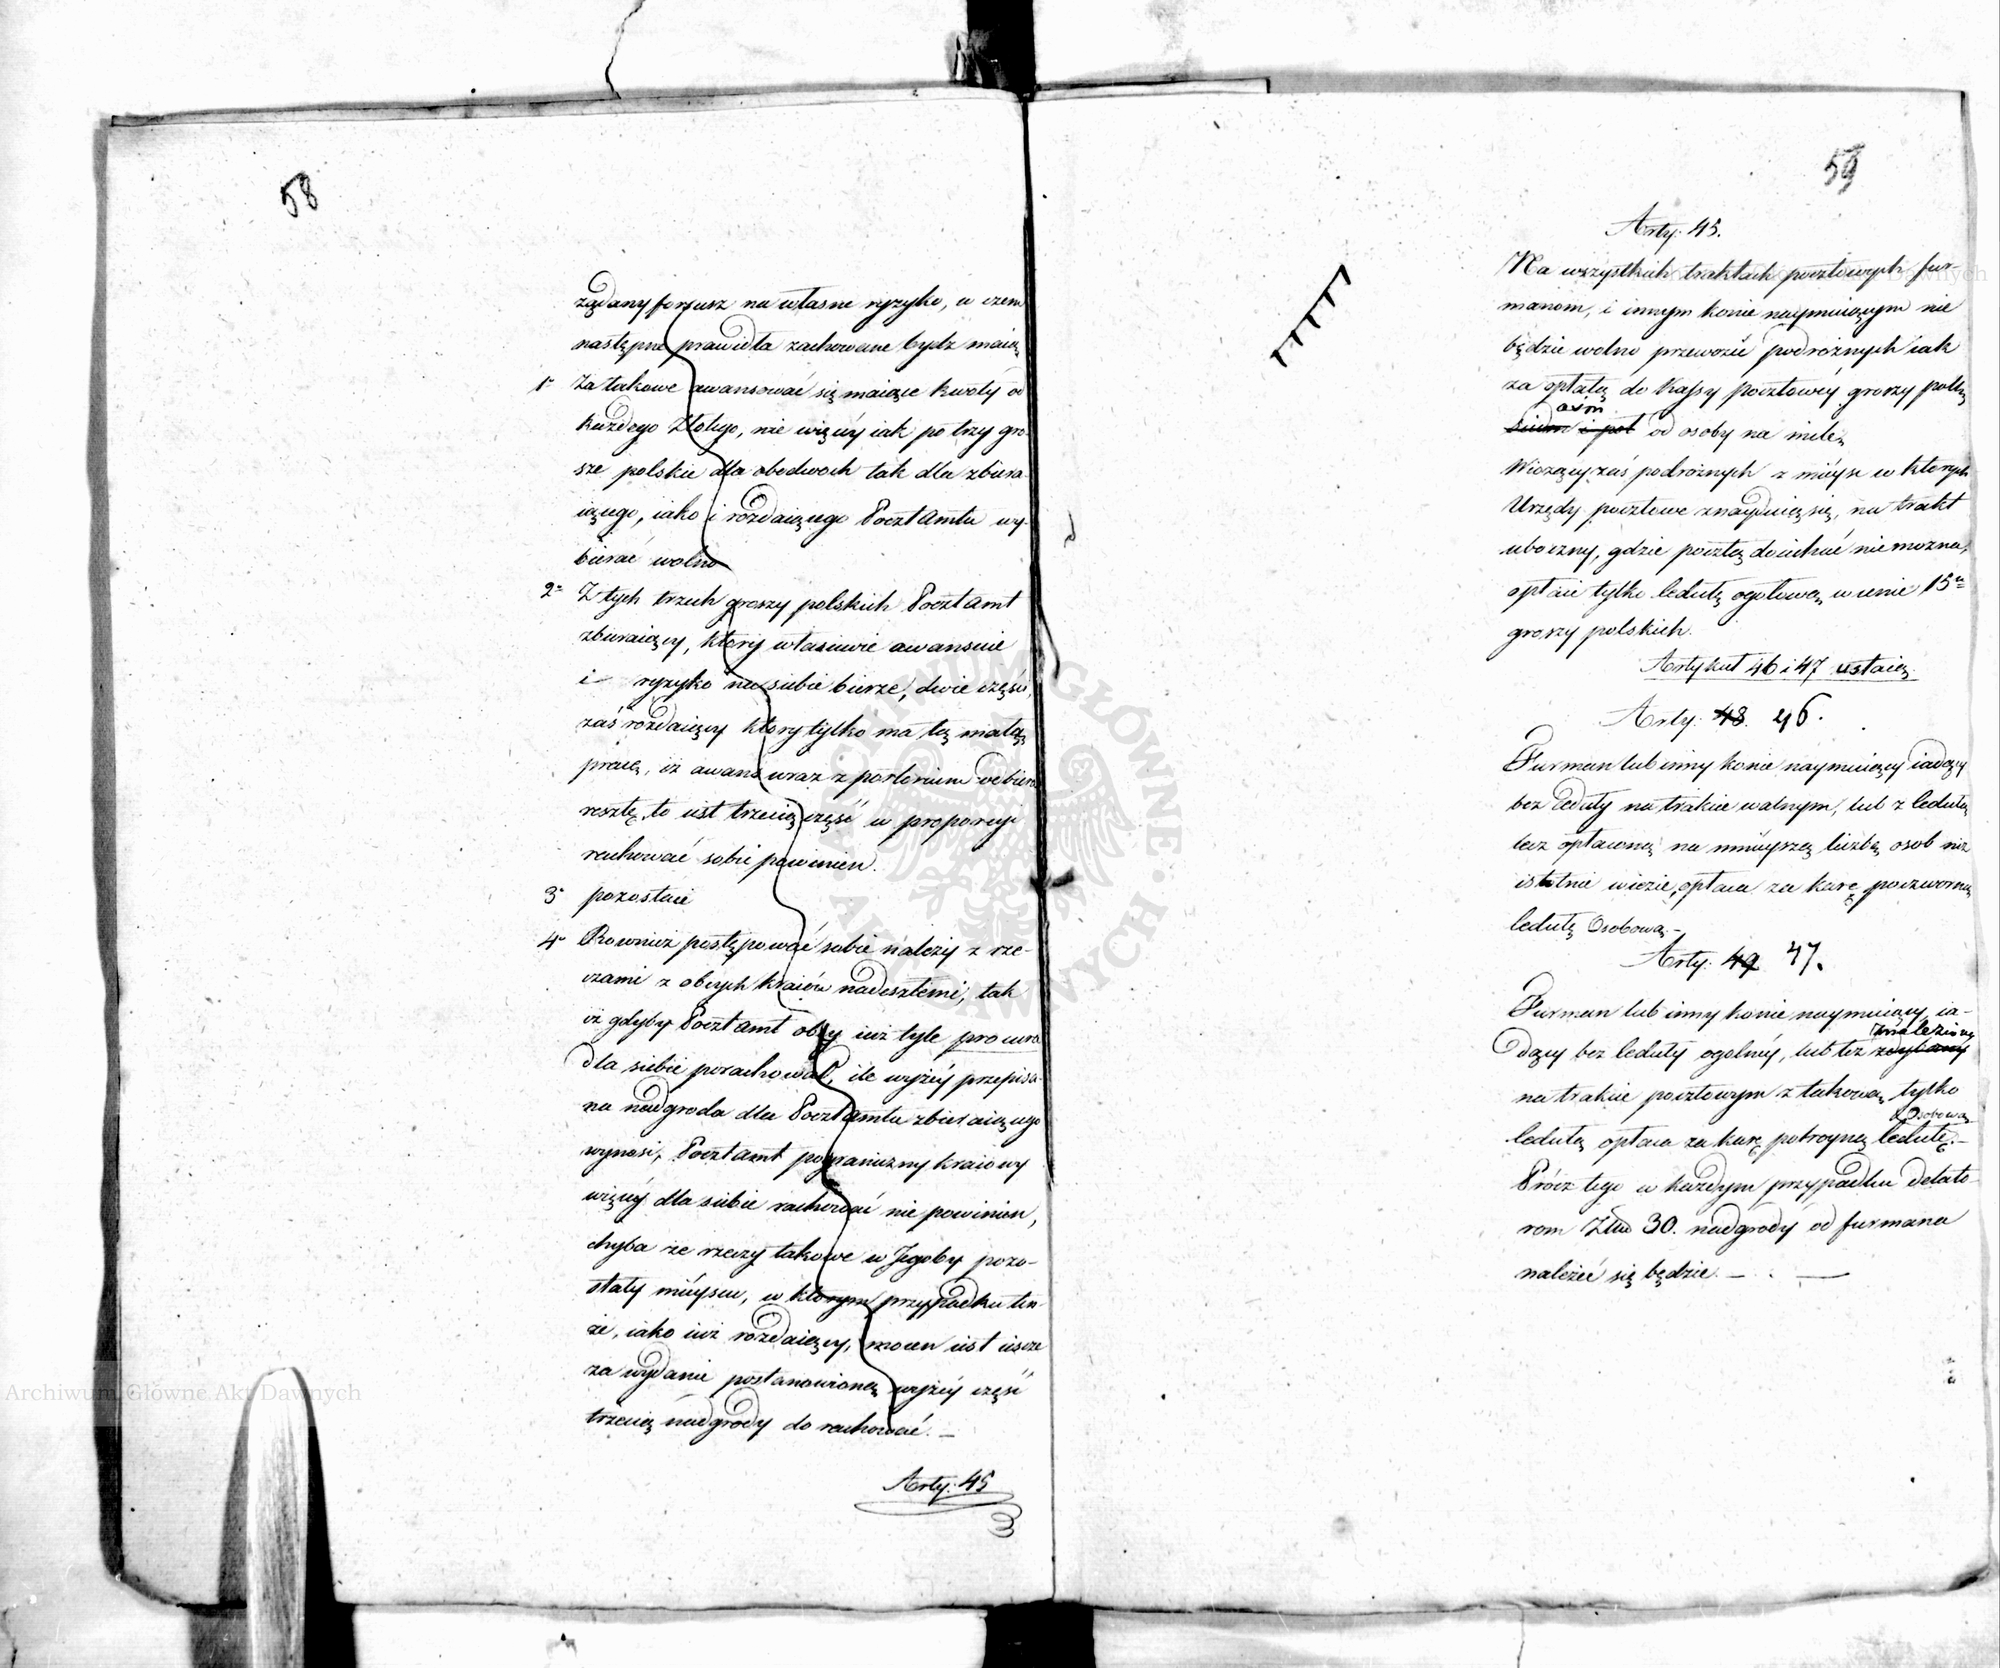 58
żądany forszusz na własne ryzyko, w czem
następne prawidła zachowane bydz maią
1o Za takowe awansować się maiące kwoty od
każdego Złotego, nie więcéy iak po trzy gro-
sze polskie dla obodwoch tak dla zbiera-
iącego, iako i rozdaiącego Pocztamtu wy-
bierać wolno
2o Z tych trzech groszy polskich Pocztamt
zbieraiący, ktory właściwie awansuie
i ryzyko na siebie bierze, dwie części,
zaś rozdaiący ktory tylko ma tę małą
pracę, iż awans wraz z portorium odbiera
resztę, to iest trzecią część w proporcyi
rachować sobie powinien.
3o pozostaie
4o Rownież postępować sobie należy z rze-
czami z obcych kraiów nadeszłemi, tak
iż gdyby Pocztamt obcy iuż tyle procura
dla siebie porachował, ile wyżéy przepisa-
na nadgroda dla Pocztamtu zbieraiącego
wynosi, Pocztamt pograniczny kraiowy
więcéy dla siebie rachować nie powinien,
chyba że rzeczy takowe w Jegoby pozo-
stały mieyscu, w ktorym przypadku ten-
że, iako iuż rozdaiący, mocen iest ieszcze
za wydanie postanowioną wyżéy część
trzecią nadgrody do rachować. —
Arty: 45
59
Arty: 45.
Na wszystkich traktach pocztowych fur-
manom, i innym konie naymuiącym nie
będzie wolno przewozić podróżnych iak
za opłatą do Kassy pocztowéy groszy polskich
osm
siedm i pol od osoby na milę
Wiozący zaś podrożnych z mieysc w ktorych
Urzędy pocztowe znayduią się, na trakt
uboczny, gdzie pocztą doiechać niemożna,
opłaci tylko cedułę ogolową w cenie 15u
groszy polskich.
Artykuł 46 i 47 ustaią
Arty: 48. 46.
Furman lub inny konie naymuiący iadący
bez ceduły na trakcie walnym, lub z cedułą
lecz opłaconą na mnieyszą liczbę osob niż
istotnie wiezie, opłaca za karę poczworną
cedułę Osobową —
Arty: 49 47.
Furman lub inny konie naymuiący, ia-
znaleziony
dący bez ceduły ogolnéy, lub też zdybany
na trakcie pocztowym z takową tylko
Osobową
cedułą opłaca za karę potroyną cedułę. —
Prócz tego w każdym przypadku delato-
rom Złłu 30. nadgrody od furmana
należeć się będzie. —
Archiwum Główne Akt Dawnych